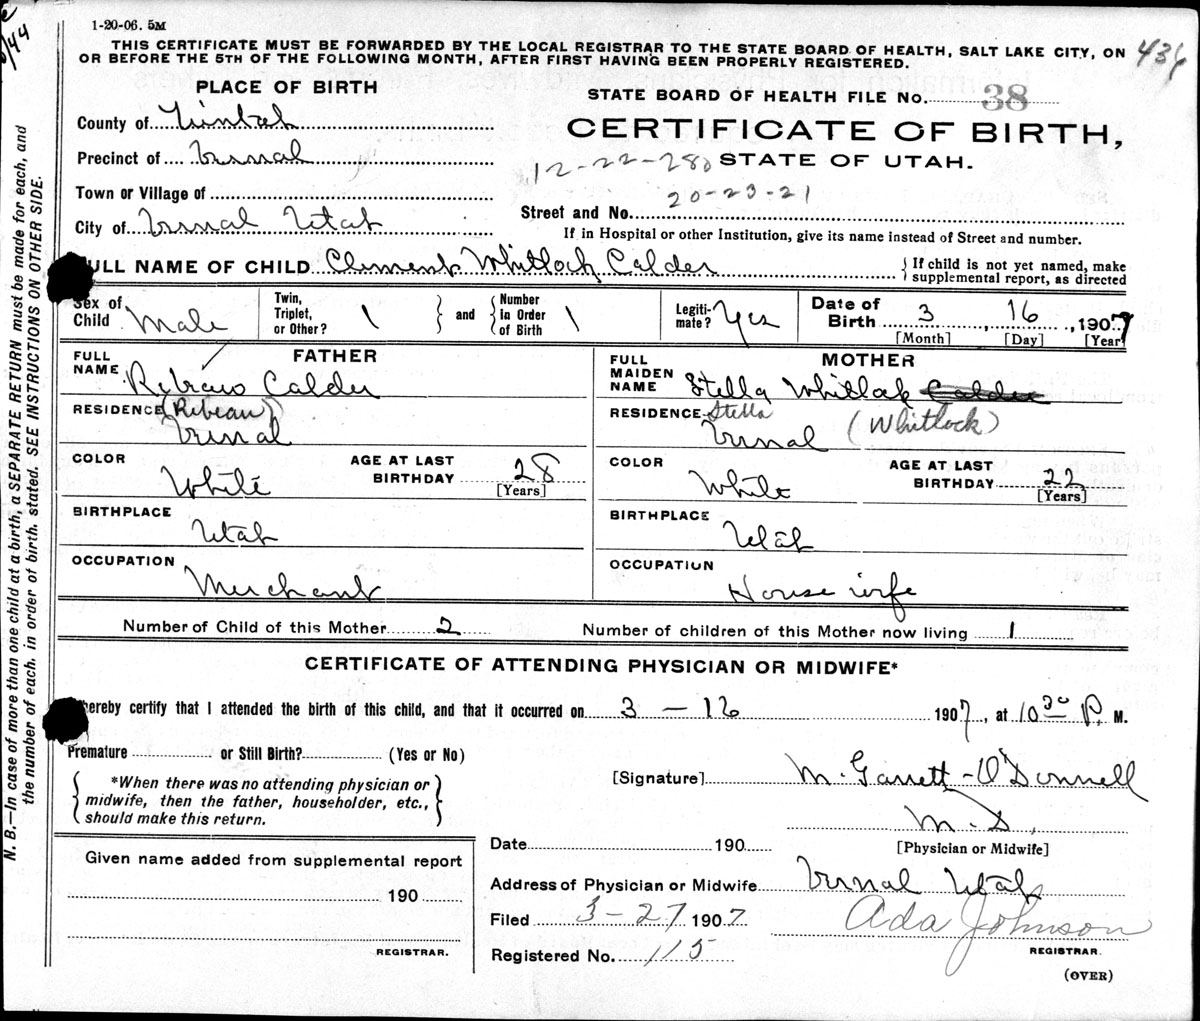 1-20-06. 5M
THIS CERTIFICATE MUST BE FORWARDED BY THE LOCAL REGISTRAR TO THE STATE BOARD OF HEALTH, SALT LAKE CITY, ON
OR BEFORE THE 5TH OF THE FOLLOWING MONTH, AFTER FIRST HAVING BEEN PROPERLY REGISTERED.
436
PLACE OF BIRTH
STATE BOARD OF HEALTH FILE No. 38
County of Uintah
CERTIFICATE OF BIRTH,
Precinct of Vernal
12-22-28 STATE OF UTAH.
Town or Village of
20-23-21
Street and No.
City of Vernal Utah
If in Hospital or other Institution, give its name instead of Street and number.
FULL NAME OF CHILD Clement Whitlock Calder
If child is not yet named, make
supplemental report, as directed
Sex of Child Male
Twin, Triplet, or Other? 1
and
Number in Order of Birth 1
Legiti-mate? Yes
Date of Birth 3, 16, 1907
[Month] [Day] [Year]
FATHER
FULL NAME Calder
(Ribeau)
RESIDENCE Vernal
COLOR White
AGE AT LAST BIRTHDAY 28
[Years]
BIRTHPLACE Utah
OCCUPATION Merchant
MOTHER
FULL MAIDEN NAME Stella Whitlock Calder
Stella (Whitlock)
RESIDENCE Vernal
COLOR White
AGE AT LAST BIRTHDAY 22
[Years]
BIRTHPLACE Utah
OCCUPATION House wife
Number of Child of this Mother 2
Number of children of this Mother now living 1
CERTIFICATE OF ATTENDING PHYSICIAN OR MIDWIFE*
hereby certify that I attended the birth of this child, and that it occurred on 3-16 1907, at 10 30 P. M.
Premature or Still Birth? (Yes or No)
*When there was no attending physician or
midwife, then the father, householder, etc.,
should make this return.
[Signature] M. Garrett-O'Donnell
M.D.
[Physician or Midwife]
Date 190
Given name added from supplemental report
190
REGISTRAR.
Address of Physician or Midwife Vernal Utah
Filed 3-27 1907
Ada Johnson
REGISTRAR.
Registered No. 115
(OVER)
N. B.—In case of more than one child at a birth, a SEPARATE RETURN must be made for each, and
the number of each, in order of birth, stated. SEE INSTRUCTIONS ON OTHER SIDE.